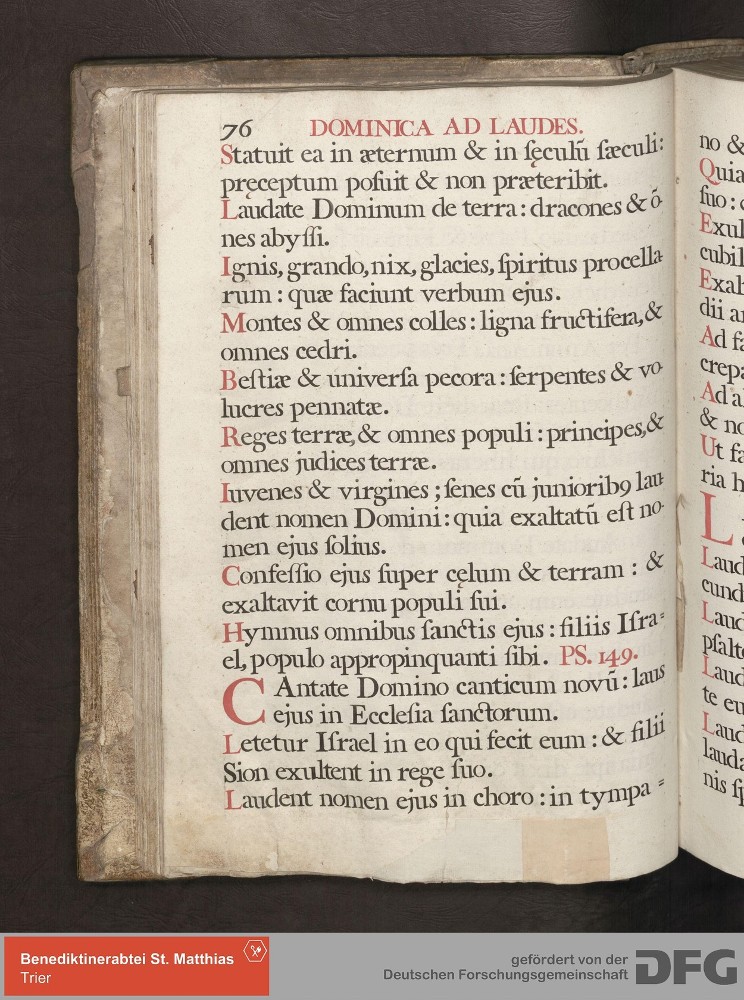 76 DOMINICA AD LAUDES.
Statuit ea in æternum & in sęculū sæculi:
pręceptum posuit & non præteribit.
Laudate Dominum de terra: dracones & ō-
nes abyssi.
Ignis, grando, nix, glacies, spiritus procella-
rum: quæ faciunt verbum ejus.
Montes & omnes colles: ligna fructifera, &
omnes cedri.
Bestiæ & universa pecora: serpentes & vo-
lucres pennatæ.
Reges terræ, & omnes populi: principes, &
omnes judices terræ.
Iuvenes & virgines; senes cū juniorib9 lau-
dent nomen Domini: quia exaltatū est no-
men ejus solius.
Confessio ejus super cęlum & terram: &
exaltavit cornu populi sui.
Hymnus omnibus sanctis ejus: filiis Isra=
el, populo appropinquanti sibi. PS. 149.
CAntate Domino canticum novū: laus
ejus in Ecclesia sanctorum.
Letetur Israel in eo qui fecit eum: & filii
Sion exultent in rege suo.
Laudent nomen ejus in choro: in tympa=
no &
Quia
suo:
Exul
cubil
Exal
dii
Ad fa
crepa
Ad a
& no
Ut fa
ria h
L
Laud
cund
Laud
psalt
Laud
te eu
Laud
lauda
nis sp
Benediktinerabtei St. Matthias
Trier
gefördert von der
Deutschen Forschungsgemeinschaft
DFG